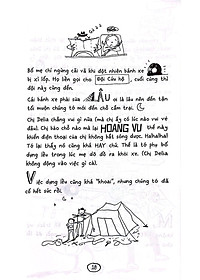 zzz
Bố mẹ chỉ ngừng cãi vã khi đột nhiên bánh xe
bị xì lốp. Họ liền gọi cho Đội Cứu hộ, cuối cùng thì
đội này cũng đến.
Cái bánh xe phải sửa LÂU ơi là lâu nên đến tận
tối muộn chúng tớ mới đến chỗ cắm trại.
Chị Delia chẳng vui gì nữa (mà chị ấy có lúc nào vui vẻ
đâu). Chị bảo chỗ nào mà lại HOANG VU thế này
khiến điện thoại của chị không bắt được sóng. Hahaha!
Tớ lại thấy nó cũng khá HAY chứ. Thế là tớ phụ bố
dựng lều trong lúc mẹ dỡ đồ ra khỏi xe. (Chị Delia
không động vào việc gì cả).
Việc dựng lều cũng khá "khoai", nhưng chúng tớ đã
cố hết sức rồi.
28